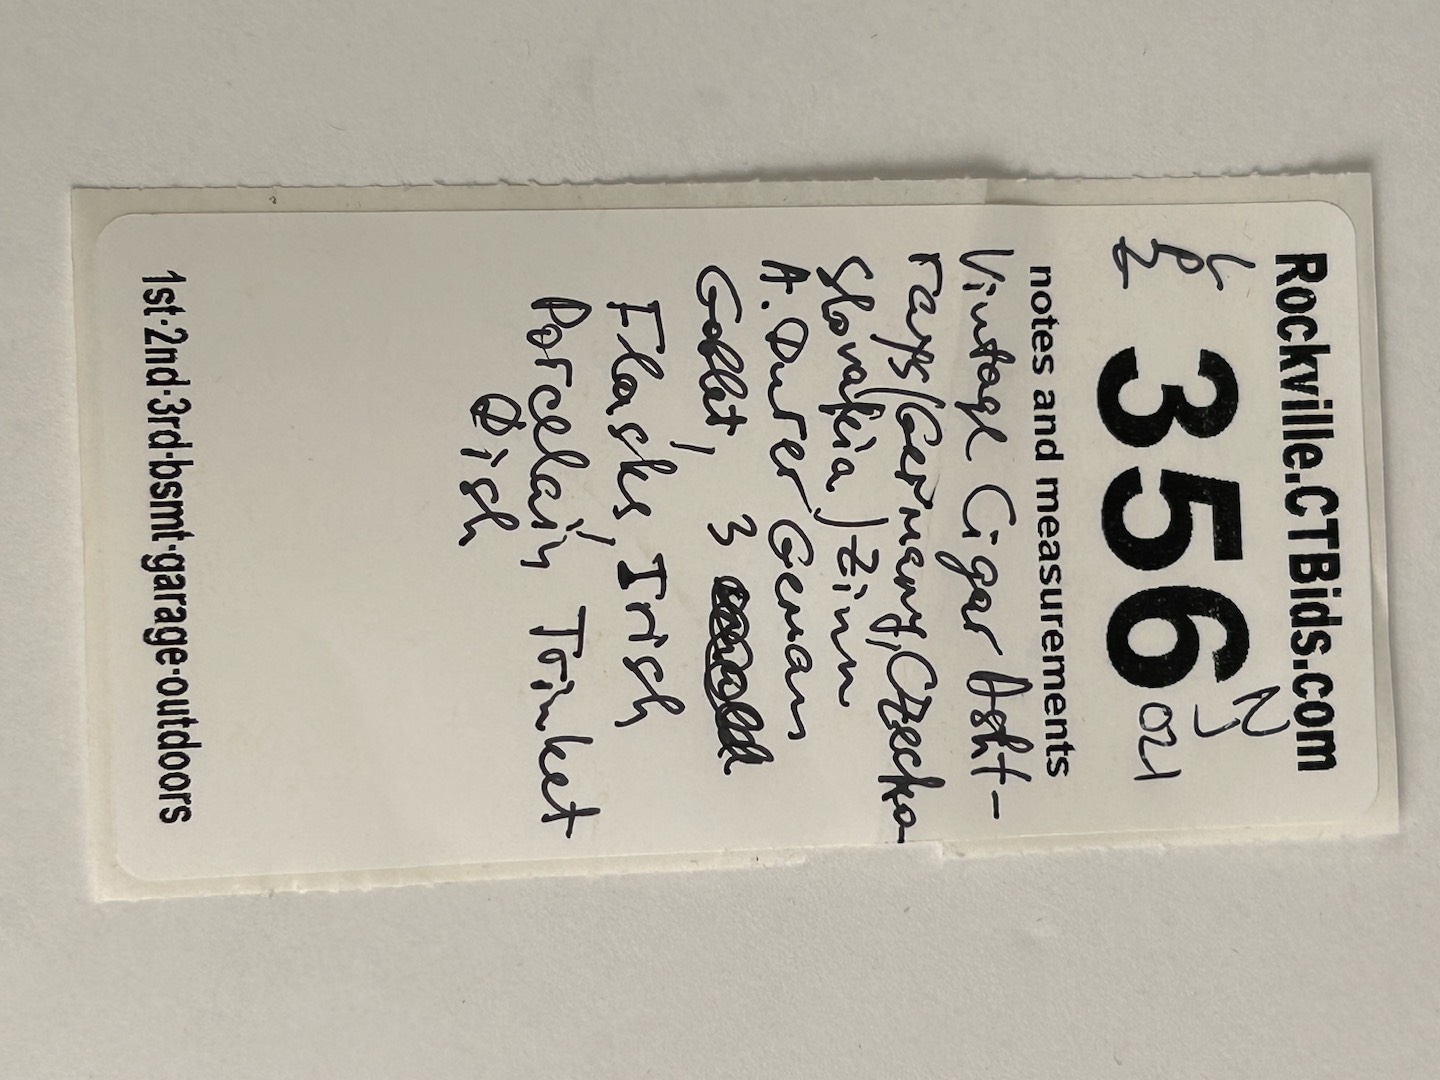 Rockville.CTBids.com
356
021
notes and measurements
Vintage Cigar Asht-
rays (Germany, Czecho
Slovakia) Zinn
A. Durer German
Goblet, 3
Flasks, Irish
Porcelain Trinket
Dish
1st·2nd·3rd·bsmt·garage·outdoors